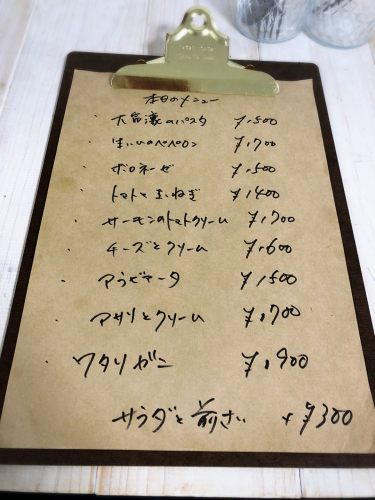 本日のメニュー
大富豪のパスタ ¥1,500
ペペロン ¥1,700
ボロネーゼ ¥1,500
トマトと玉ねぎ ¥1,400
サーモンのトマトクリーム ¥1,700
チーズとクリーム ¥1,600
アラビアータ ¥1,500
アサリとクリーム ¥1,700
ワタリガニ ¥1,900
サラダと前さい +¥300